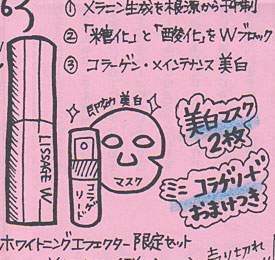 ① メラニン生成を根源から抑制
② 「糖化」と「酸化」をWブロック
③ コラーゲン・メインテナンス美白
即効 美白
LISSAGE W
コラゲリード
マスク
美白マスク
2枚
ミニ コラゲリード
おまけつき
ホワイトニングエフェクター限定セット
売り切れ